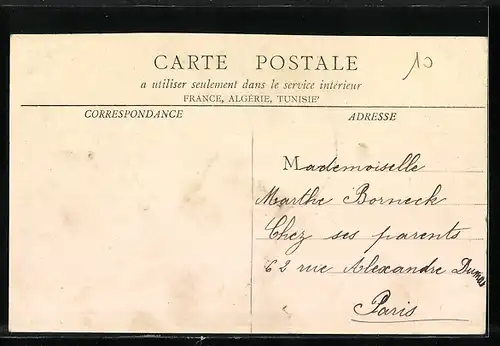 CARTE POSTALE
10
a utiliser seulement dans le service intérieur
FRANCE, ALGÉRIE, TUNISIE
CORRESPONDANCE
ADRESSE
Mademoiselle
Marthe Borneck
Chez ses parents
62 rue Alexandre Dumas
Paris